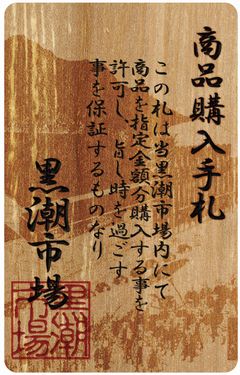 商品購入手札
この札は当黒潮市場内にて
商品を指定金額分購入する事を
許可し、旨し時を過ごす
事を保証するものなり
黒潮市場
黒潮
市場